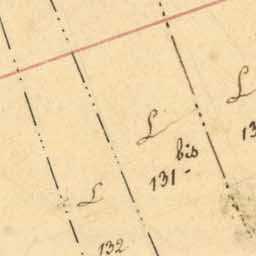 L
L
bis
131-
13
L
132